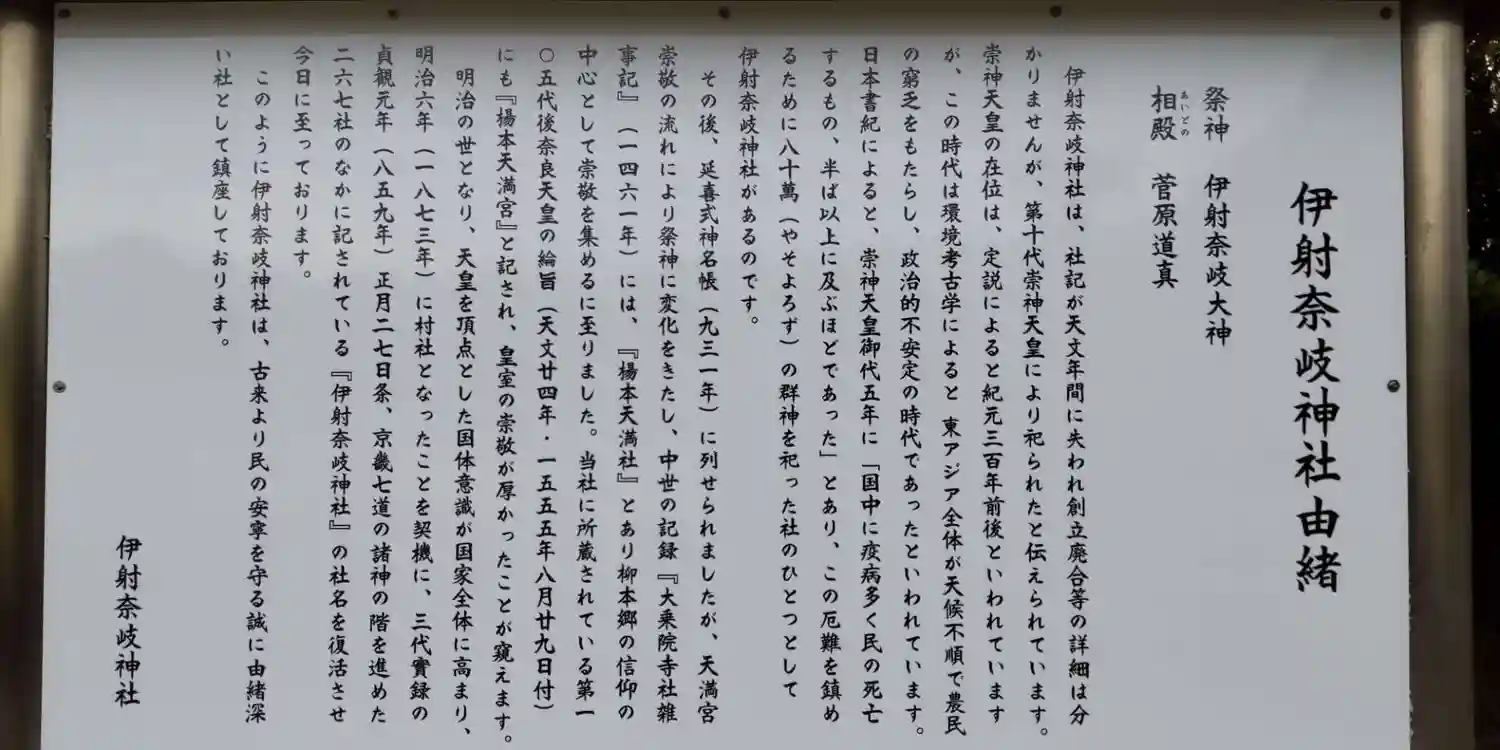 伊射奈岐神社由緒
祭神　伊射奈岐大神
相殿　菅原道真
あいどの
伊射奈岐神社は、社記が天文年間に失われ創立廃合等の詳細は分
かりませんが、第十代崇神天皇により祀られたと伝えられています。
崇神天皇の在位は、定説によると紀元三百年前後といわれています
が、この時代は環境考古学によると 東アジア全体が天候不順で農民
の窮乏をもたらし、政治的不安定の時代であったといわれています。
日本書紀によると、崇神天皇御代五年に「国中に疫病多く民の死亡
するもの、半ば以上に及ぶほどであった」とあり、この厄難を鎮め
るために八十萬（やそよろず）の群神を祀った社のひとつとして
伊射奈岐神社があるのです。
その後、延喜式神名帳（九三一年）に列せられましたが、天満宮
崇敬の流れにより祭神に変化をきたし、中世の記録『大乗院寺社雑
事記』（一四六一年）には、『楊本天満社』とあり柳本郷の信仰の
中心として崇敬を集めるに至りました。当社に所蔵されている第一
〇五代後奈良天皇の綸旨（天文廿四年・一五五五年八月廿九日付）
にも『楊本天満宮』と記され、皇室の崇敬が厚かったことが窺えます。
明治の世となり、天皇を頂点とした国体意識が国家全体に高まり、
明治六年（一八七三年）に村社となったことを契機に、三代實録の
貞観元年（八五九年）正月二七日条、京畿七道の諸神の階を進めた
二六七社のなかに記されている『伊射奈岐神社』の社名を復活させ
今日に至っております。
このように伊射奈岐神社は、古来より民の安寧を守る誠に由緒深
い社として鎮座しております。
伊射奈岐神社